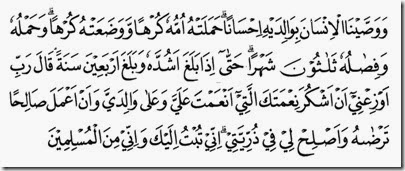 وَوَصَّيْنَا الْاِنْسَانَ بِوَالِدَيْهِ اِحْسَانًاۗ حَمَلَتْهُ اُمُّهُ كُرْهًا وَّوَضَعَتْهُ كُرْهًاۗ وَحَمْلُهُ
وَفِصٰلُهُ ثَلٰثُوْنَ شَهْرًاۗ حَتّٰىٓ اِذَا بَلَغَ اَشُدَّهُ وَبَلَغَ اَرْبَعِيْنَ سَنَةًۙ قَالَ رَبِّ
اَوْزِعْنِيْٓ اَنْ اَشْكُرَ نِعْمَتَكَ الَّتِيْٓ اَنْعَمْتَ عَلَيَّ وَعَلٰى وَالِدَيَّ وَاَنْ اَعْمَلَ صَالِحًا
تَرْضٰىهُ وَاَصْلِحْ لِيْ فِيْ ذُرِّيَّتِيْۗ اِنِّيْ تُبْتُ اِلَيْكَ وَاِنِّيْ مِنَ الْمُسْلِمِيْنَ